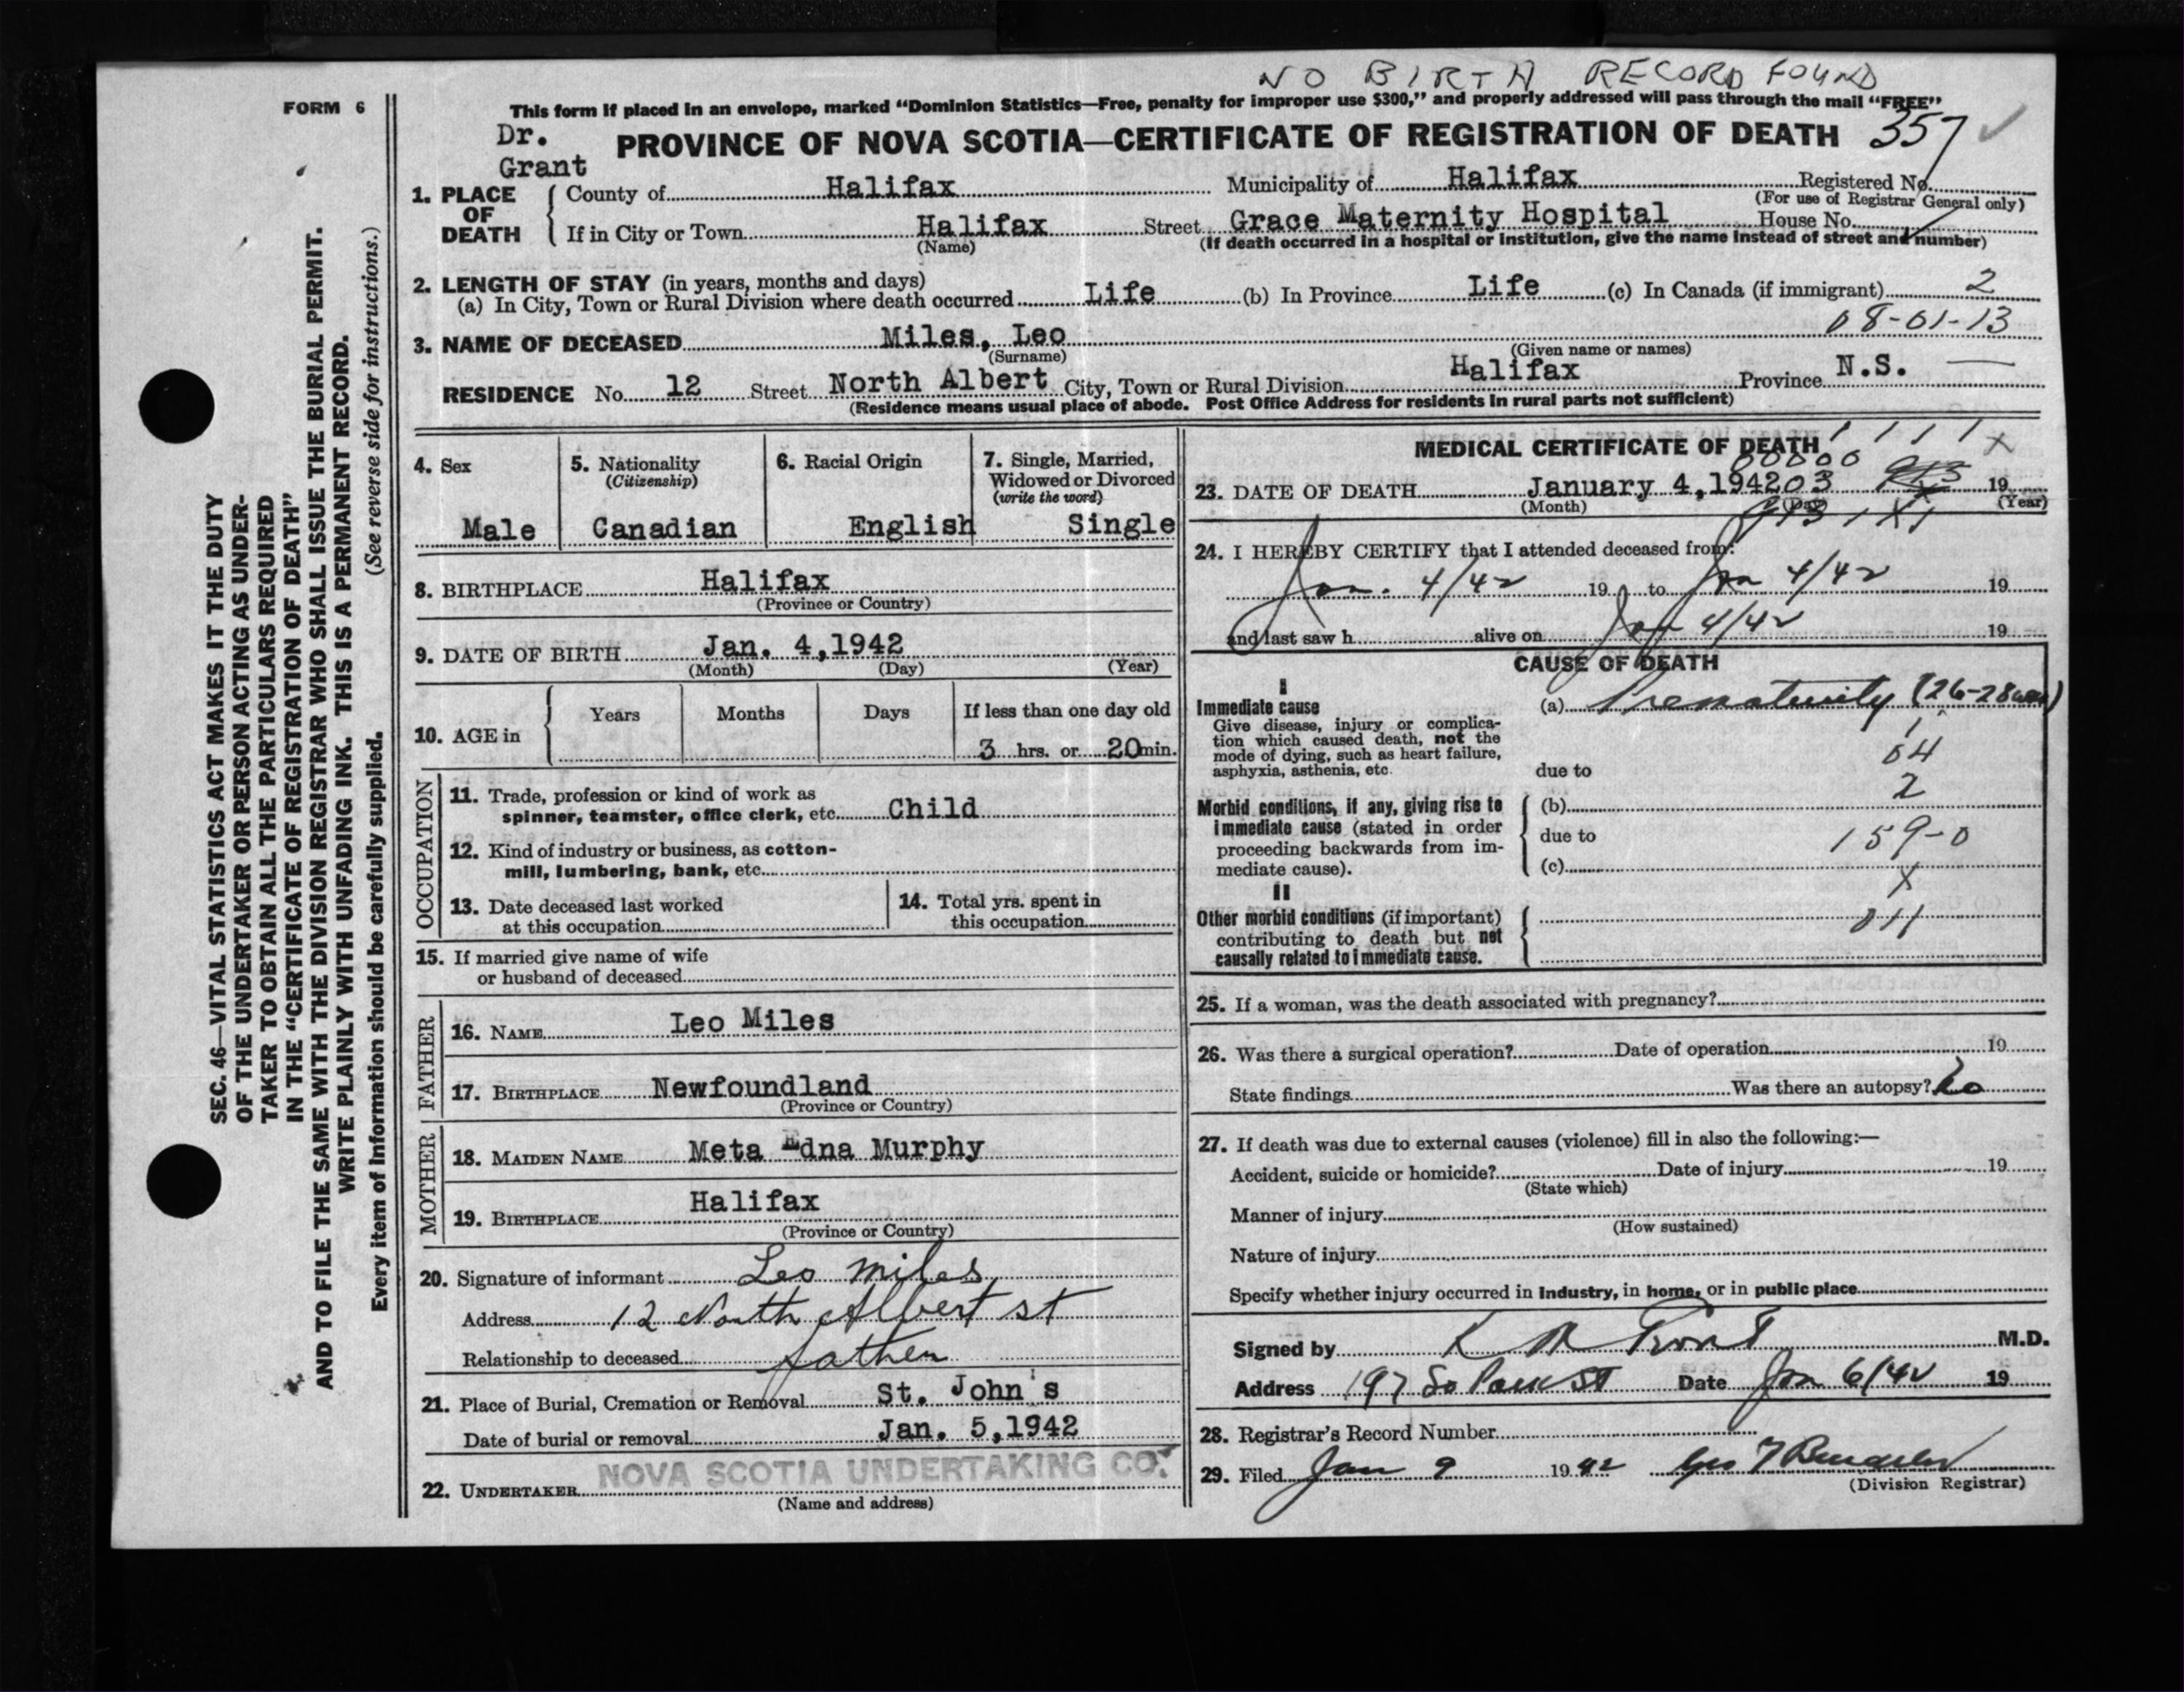 NO BIRTH RECORD FOUND
FORM 6
This form if placed in an envelope, marked “Dominion Statistics—Free, penalty for improper use $300,” and properly addressed will pass through the mail “FREE”
Dr. Grant
PROVINCE OF NOVA SCOTIA—CERTIFICATE OF REGISTRATION OF DEATH 357
1. PLACE OF DEATH
County of Halifax Municipality of Halifax Registered No.
(For use of Registrar General only)
If in City or Town Halifax Street Grace Maternity Hospital House No.
(Name) (If death occurred in a hospital or institution, give the name instead of street and number)
2. LENGTH OF STAY (in years, months and days)
(a) In City, Town or Rural Division where death occurred Life (b) In Province Life (c) In Canada (if immigrant) 2
08-01-13
3. NAME OF DECEASED Miles, Leo
(Surname) (Given name or names)
RESIDENCE No. 12 Street North Albert City, Town or Rural Division Halifax Province N.S.
(Residence means usual place of abode. Post Office Address for residents in rural parts not sufficient)
SEC. 46—VITAL STATISTICS ACT MAKES IT THE DUTY
OF THE UNDERTAKER OR PERSON ACTING AS UNDER-
TAKER TO OBTAIN ALL THE PARTICULARS REQUIRED
IN THE “CERTIFICATE OF REGISTRATION OF DEATH”
AND TO FILE THE SAME WITH THE DIVISION REGISTRAR WHO SHALL ISSUE THE BURIAL PERMIT.
WRITE PLAINLY WITH UNFADING INK. THIS IS A PERMANENT RECORD.
Every item of information should be carefully supplied. (See reverse side for instructions.)
4. Sex
Male
5. Nationality
(Citizenship)
Canadian
6. Racial Origin
English
7. Single, Married,
Widowed or Divorced
(write the word)
Single
8. BIRTHPLACE Halifax
(Province or Country)
9. DATE OF BIRTH Jan. 4,1942
(Month) (Day) (Year)
10. AGE in
Years Months Days If less than one day old
3 hrs. or 20 min.
OCCUPATION
11. Trade, profession or kind of work as
spinner, teamster, office clerk, etc. Child
12. Kind of industry or business, as cotton-
mill, lumbering, bank, etc.
13. Date deceased last worked
at this occupation
14. Total yrs. spent in
this occupation
15. If married give name of wife
or husband of deceased
FATHER
16. NAME Leo Miles
17. BIRTHPLACE Newfoundland
(Province or Country)
MOTHER
18. MAIDEN NAME Meta Edna Murphy
19. BIRTHPLACE Halifax
(Province or Country)
20. Signature of informant Leo Miles
Address 12 North Albert st
Relationship to deceased father
21. Place of Burial, Cremation or Removal St. John's
Date of burial or removal Jan. 5,1942
22. UNDERTAKER NOVA SCOTIA UNDERTAKING CO.
(Name and address)
MEDICAL CERTIFICATE OF DEATH 1 1 1 1 X
00000
23. DATE OF DEATH January 4,1942 03 19
(Month) (Day) (Year)
24. I HEREBY CERTIFY that I attended deceased from:
Jan. 4/42 19 to Jan 4/42 19
and last saw h alive on Jan 4/42 19
CAUSE OF DEATH
I
Immediate cause
Give disease, injury or complica-
tion which caused death, not the
mode of dying, such as heart failure,
asphyxia, asthenia, etc.
(a) Prematurity (26-28 wks)
04
due to
2
Morbid conditions, if any, giving rise to
immediate cause (stated in order
proceeding backwards from im-
mediate cause).
(b)
due to 159-0
(c)
X
II
Other morbid conditions (if important)
contributing to death but not
causally related to immediate cause.
011
25. If a woman, was the death associated with pregnancy?
26. Was there a surgical operation? Date of operation 19
State findings Was there an autopsy? No
27. If death was due to external causes (violence) fill in also the following:—
Accident, suicide or homicide? Date of injury 19
(State which)
Manner of injury
(How sustained)
Nature of injury
Specify whether injury occurred in industry, in home, or in public place
Signed by K M Grant M.D.
Address 197 So Park St Date Jan 6/42 19
28. Registrar's Record Number
29. Filed Jan 9 1942
(Division Registrar)